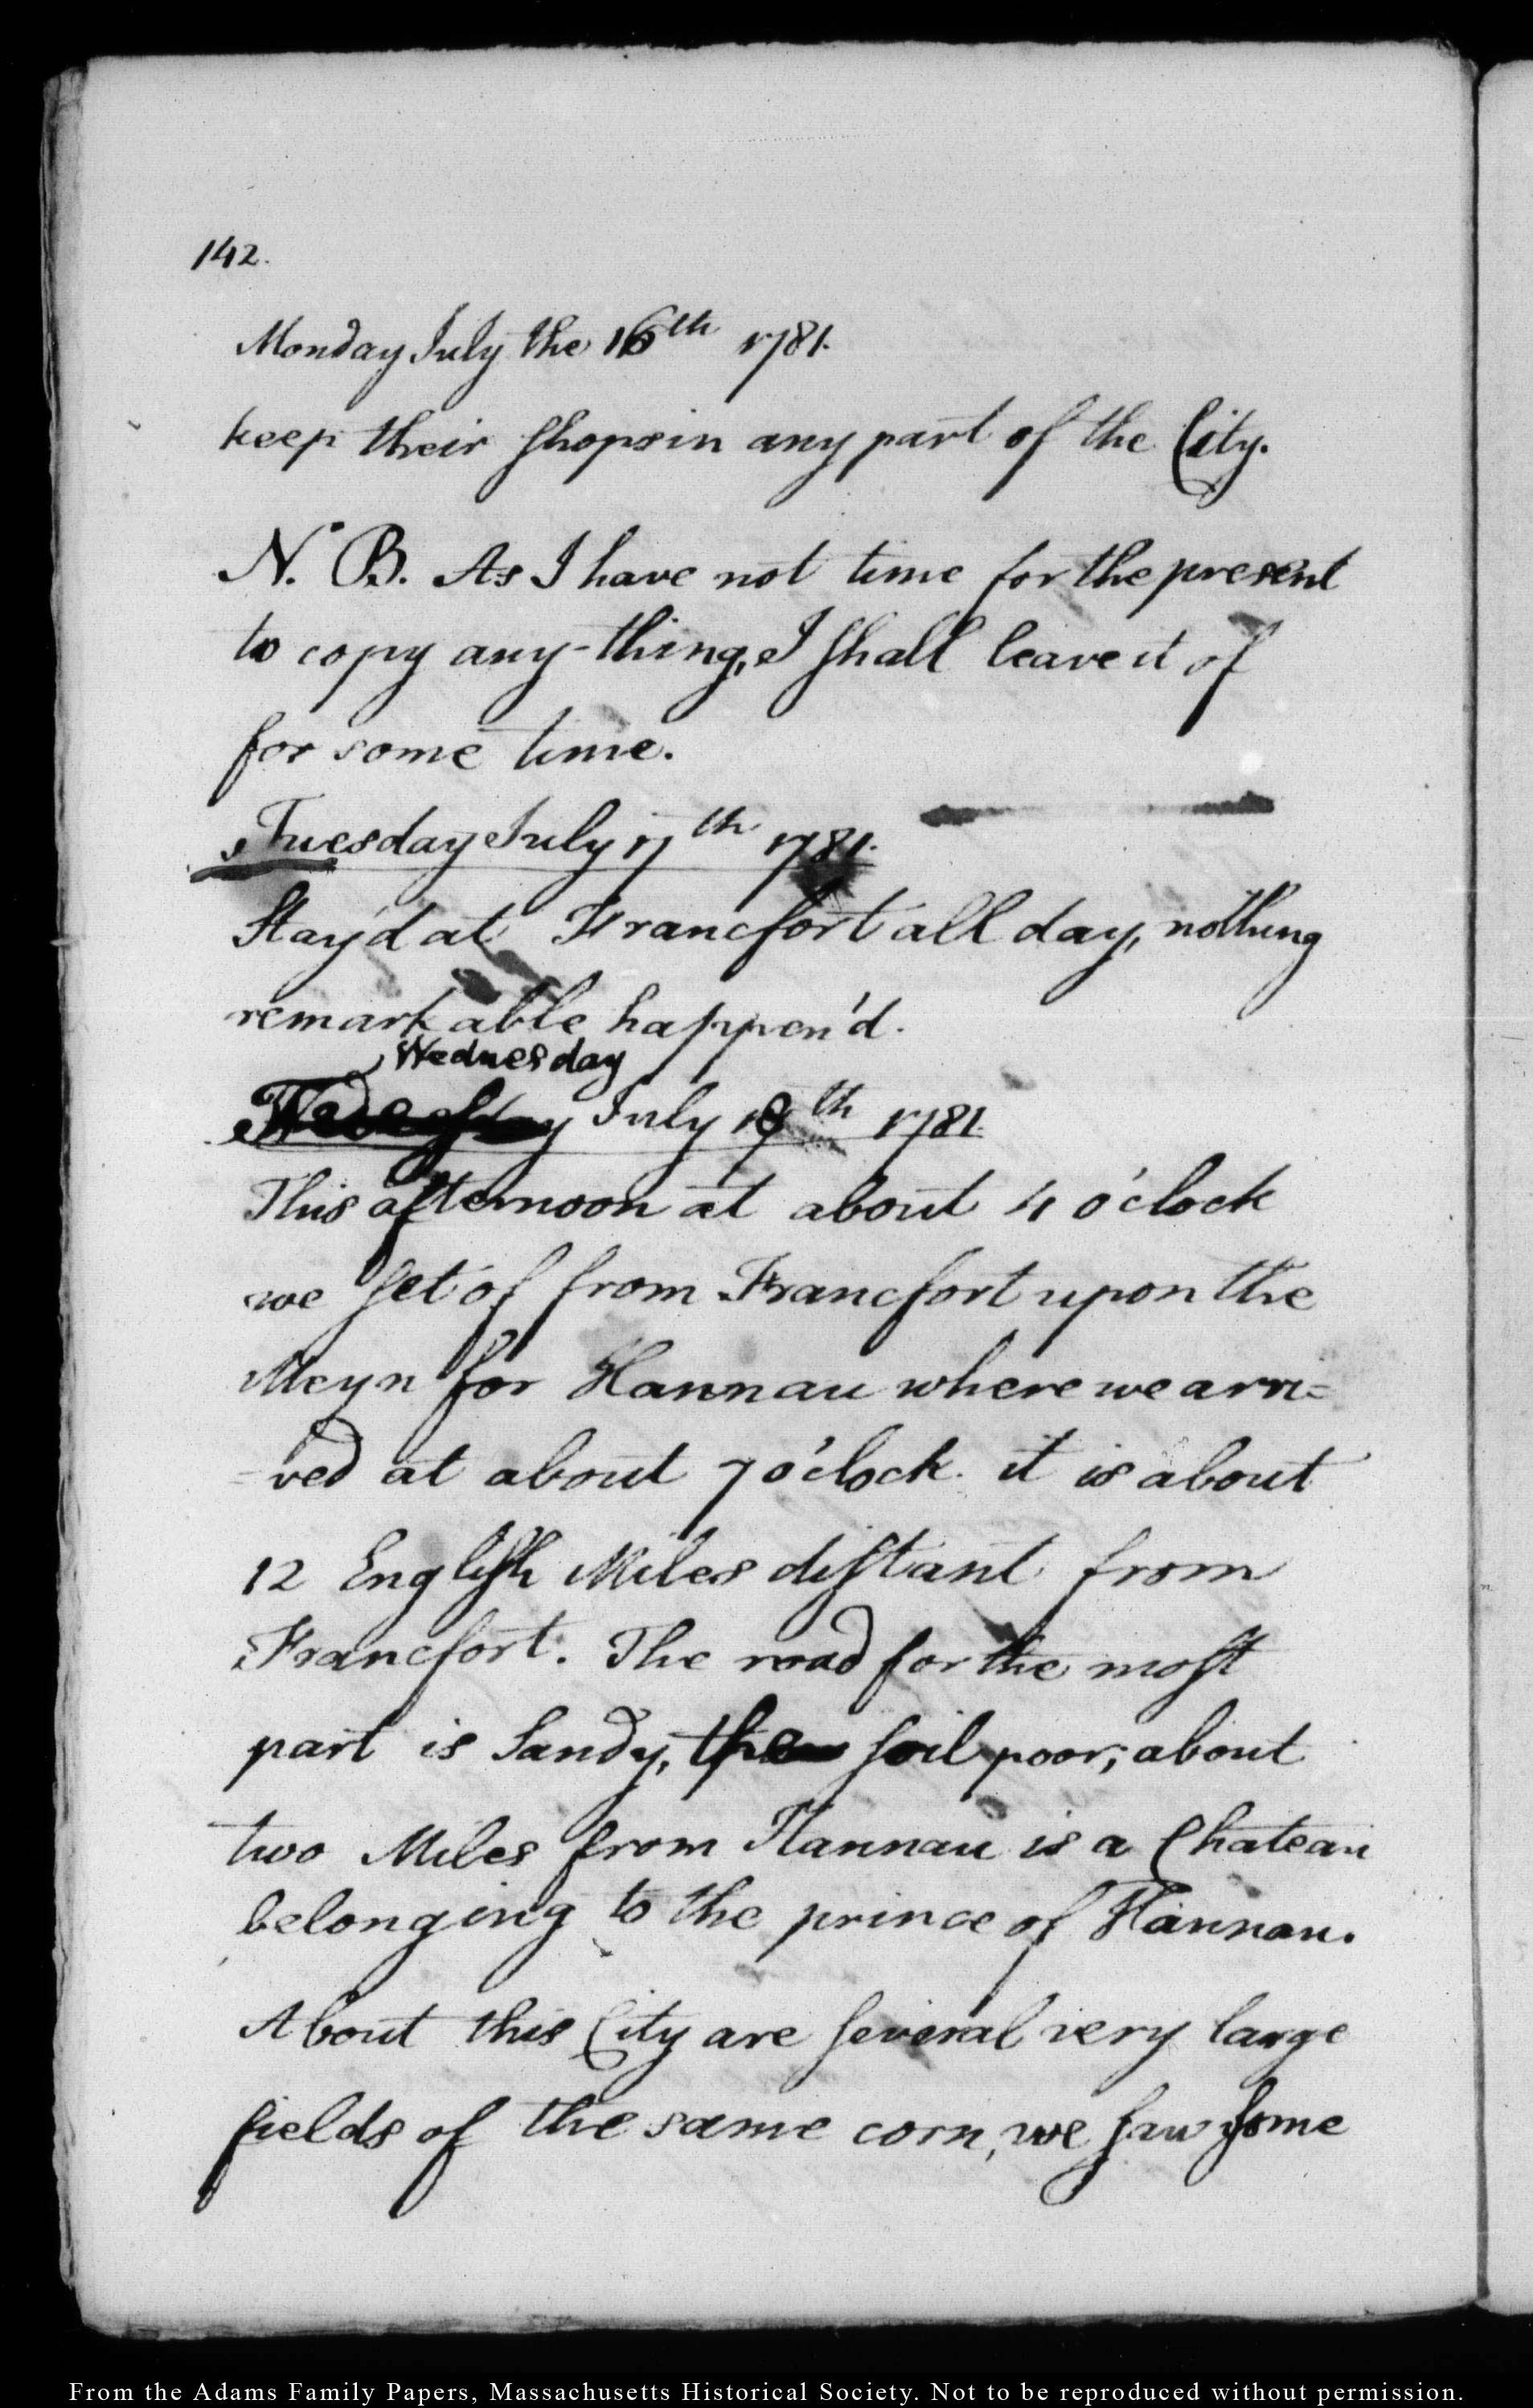 142.
Monday July the 16th 1781.
keep their shops in any part of the City.
N. B. As I have not time for the present
to copy any-thing, I shall leave it of
for some time.
Tuesday July 17th 1781.
Stay'd at Francfort all day, nothing
remarkable happen'd.
Wednesday
July 18th 1781
This afternoon at about 4 o'clock
we set of from Francfort upon the
Meyn for Hannau where we arri=
=ved at about 7 o'clock. it is about
12 English Miles distant from
Francfort. The road for the most
part is Sandy, the soil poor; about
two Miles from Hannau is a Chateau
belonging to the prince of Hannau.
About this City are several very large
fields of the same corn, we saw some
From the Adams Family Papers, Massachusetts Historical Society. Not to be reproduced without permission.